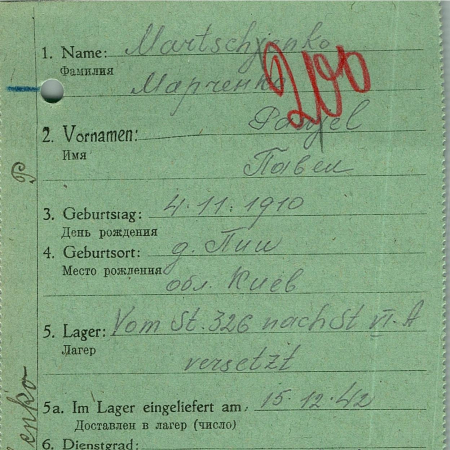 1. Name: Martschenko
Фамилия
Марченко
206
2. Vornamen: Pawel
Имя
Павел
3. Geburtstag: 4.11.1910
День рождения
4. Geburtsort: д. Пии
Место рождения
обл. Киев
5. Lager: Vom St. 326 nach St VI-A
Лагерь
versetzt
5a. Im Lager eingeliefert am: 15.12.42
Доставлен в лагерь (число)
6. Dienstgrad:
P
enko